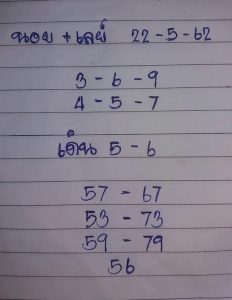 นอย + เลย์ 22 - 5 - 62
3 - 6 - 9
4 - 5 - 7
เด่น 5 - 6
57 - 67
53 - 73
59 - 79
56